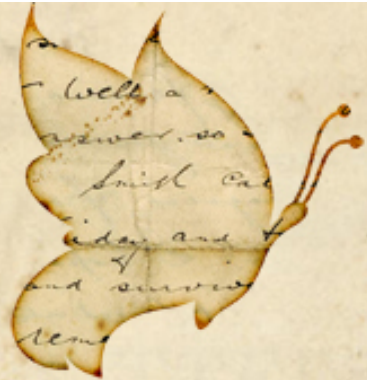 Well a
nswer. so a
Smith ca
iday and t
and surviv
reme